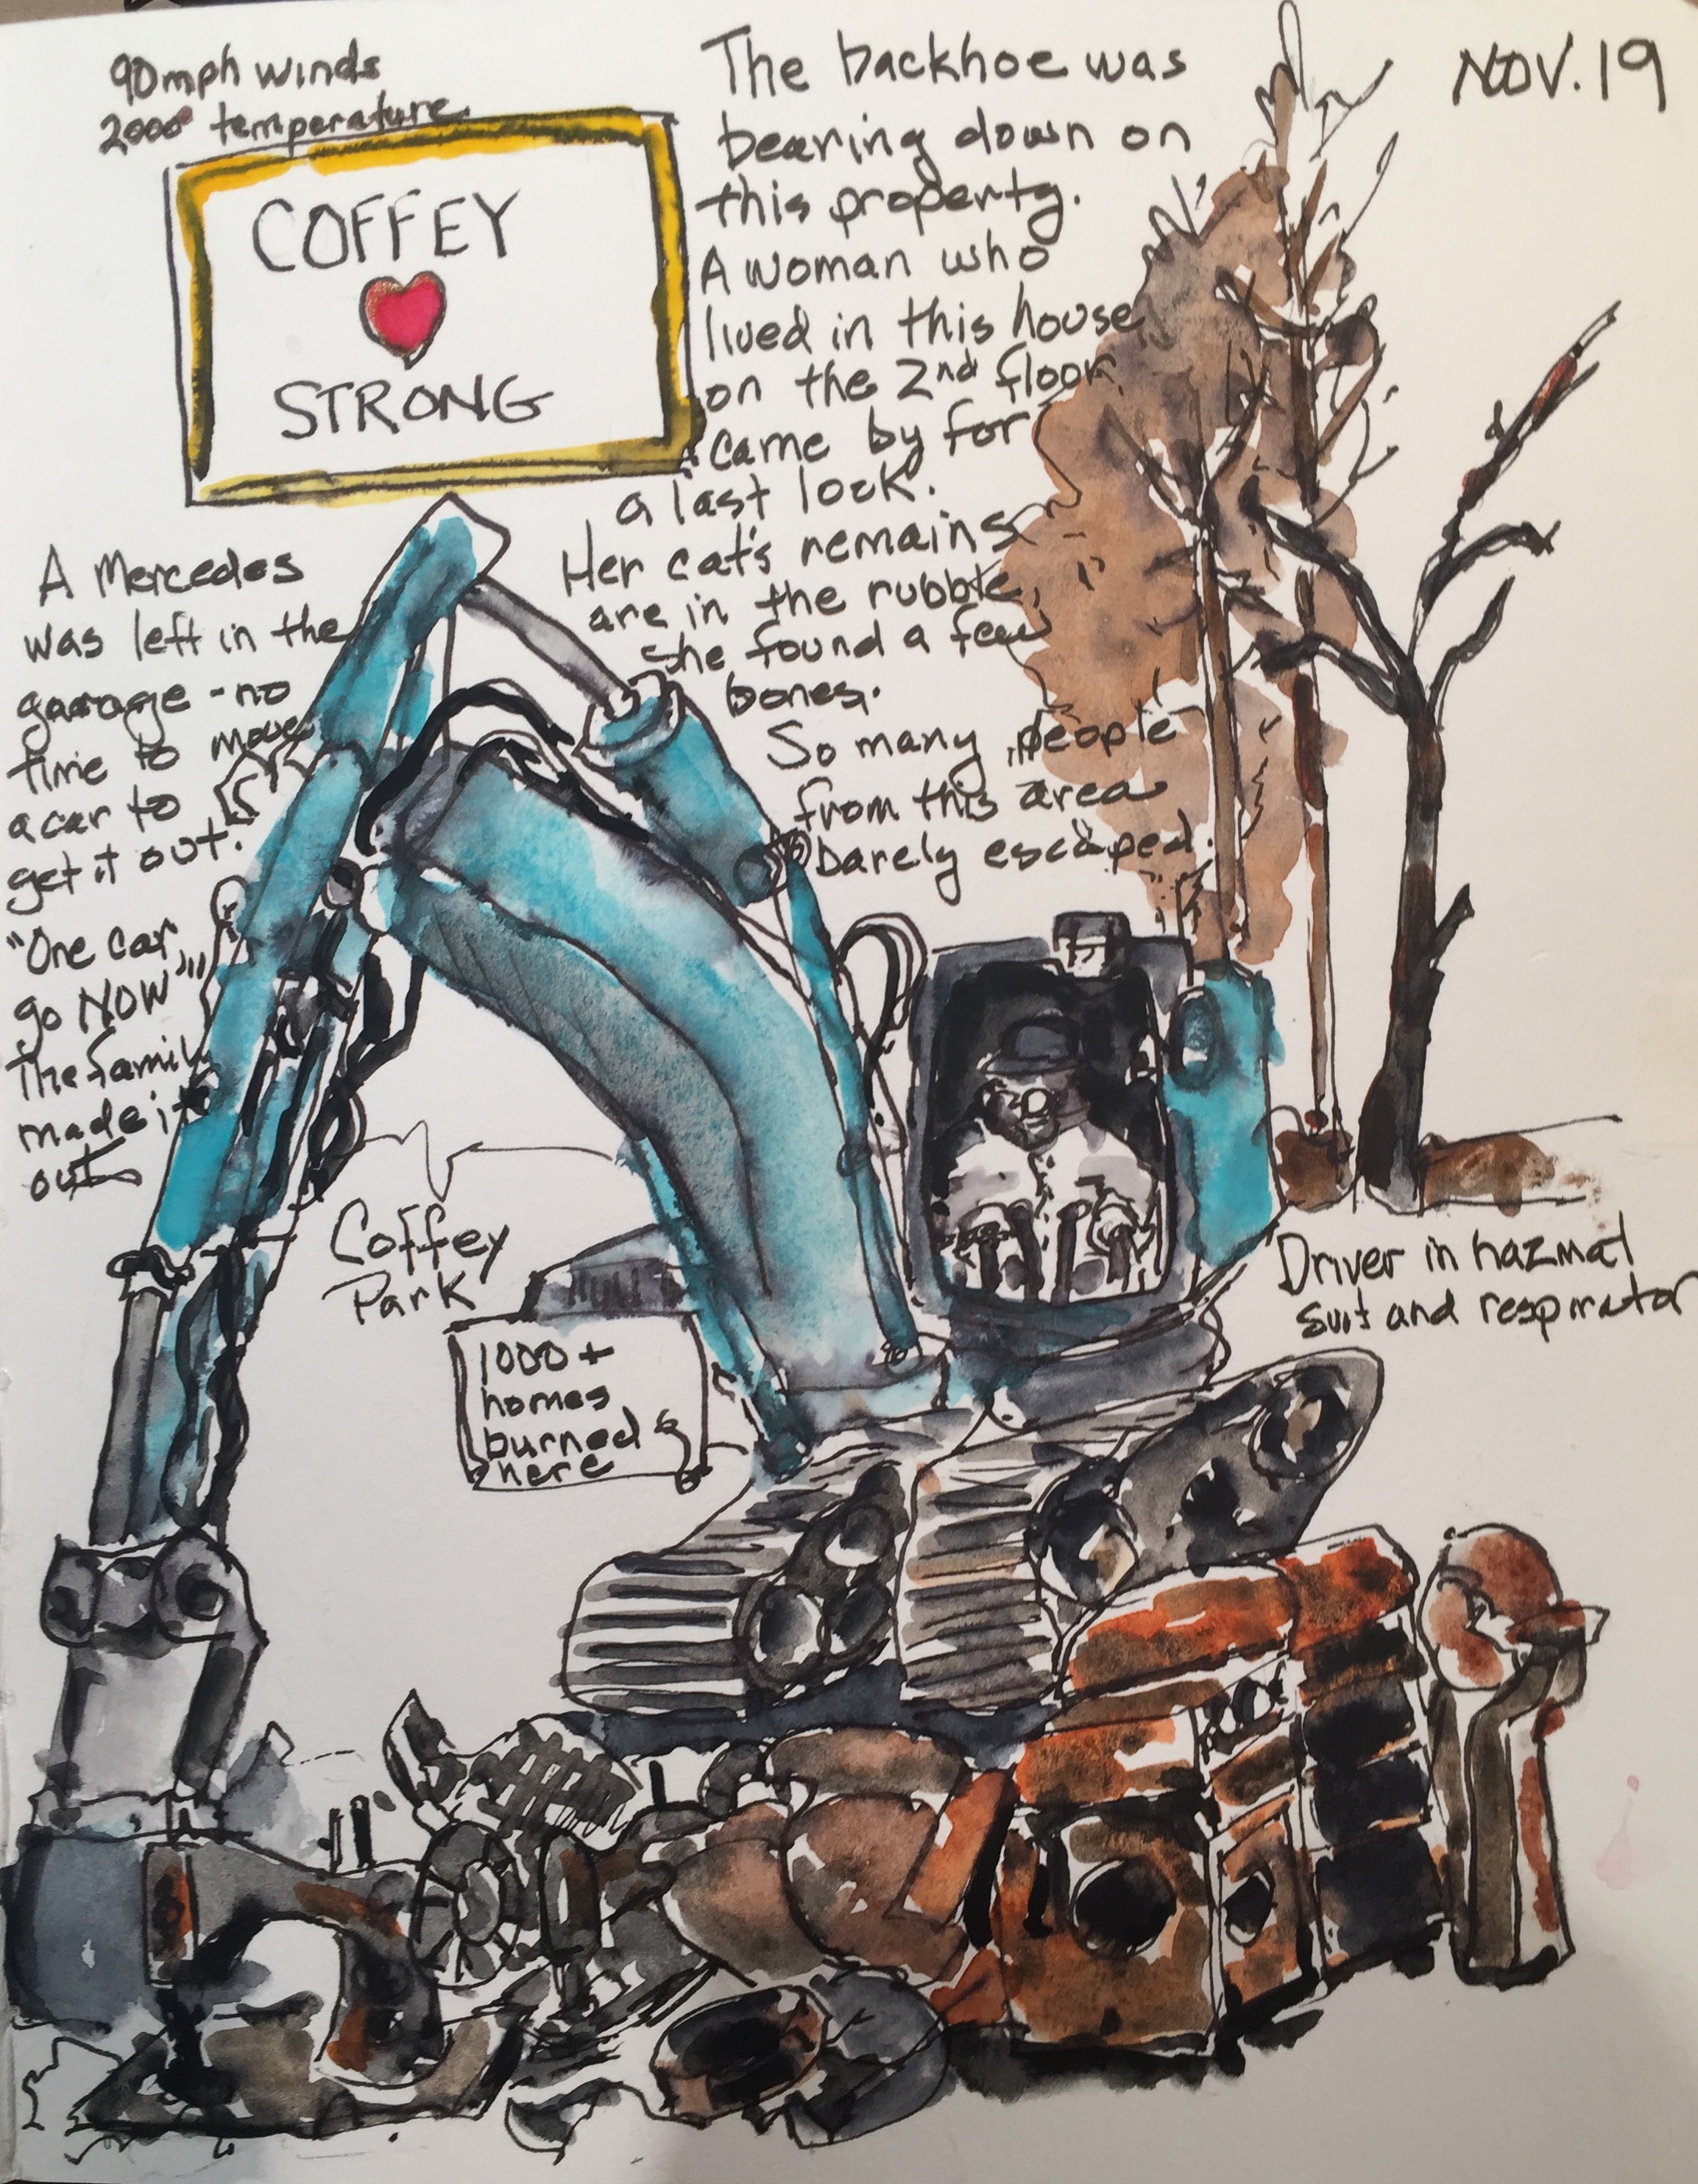 90mph winds
2000° temperature
COFFEY
STRONG
The backhoe was
bearing down on
this property.
A woman who
lived in this house
on the 2nd floor
came by for
a last look.
Her cat's remains
are in the rubble,
she found a few
bones.
So many people
from this area
barely escaped.
NOV. 19
A Mercedes
was left in the
garage - no
time to move
a car to
get it out.
"One car,
go NOW",,,
The family
made it
out
Coffey
Park
1000+
homes
burned
here
Driver in hazmat
suit and respirator